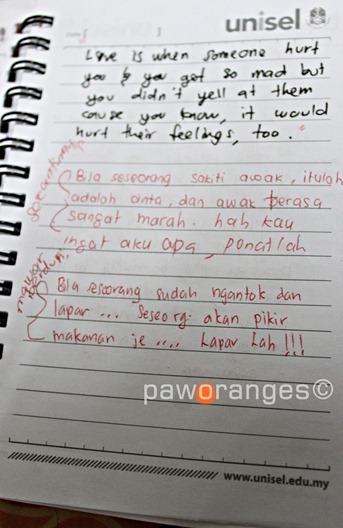 unisel
Love is when someone hurt
you & you get so mad but
you didn't yell at them
cause you know, it would
hurt their feelings, too.
Bila seseorang sakiti awak, itulah
adalah cinta, dan awak berasa
sangat marah. hah kau
ingat aku apa, penat lah
Bla seseorang sudah ngantok dan
lapar ... Seseorg akan pikir
makanan je .... Lapar Lah !!!
paworanges©
www.unisel.edu.my